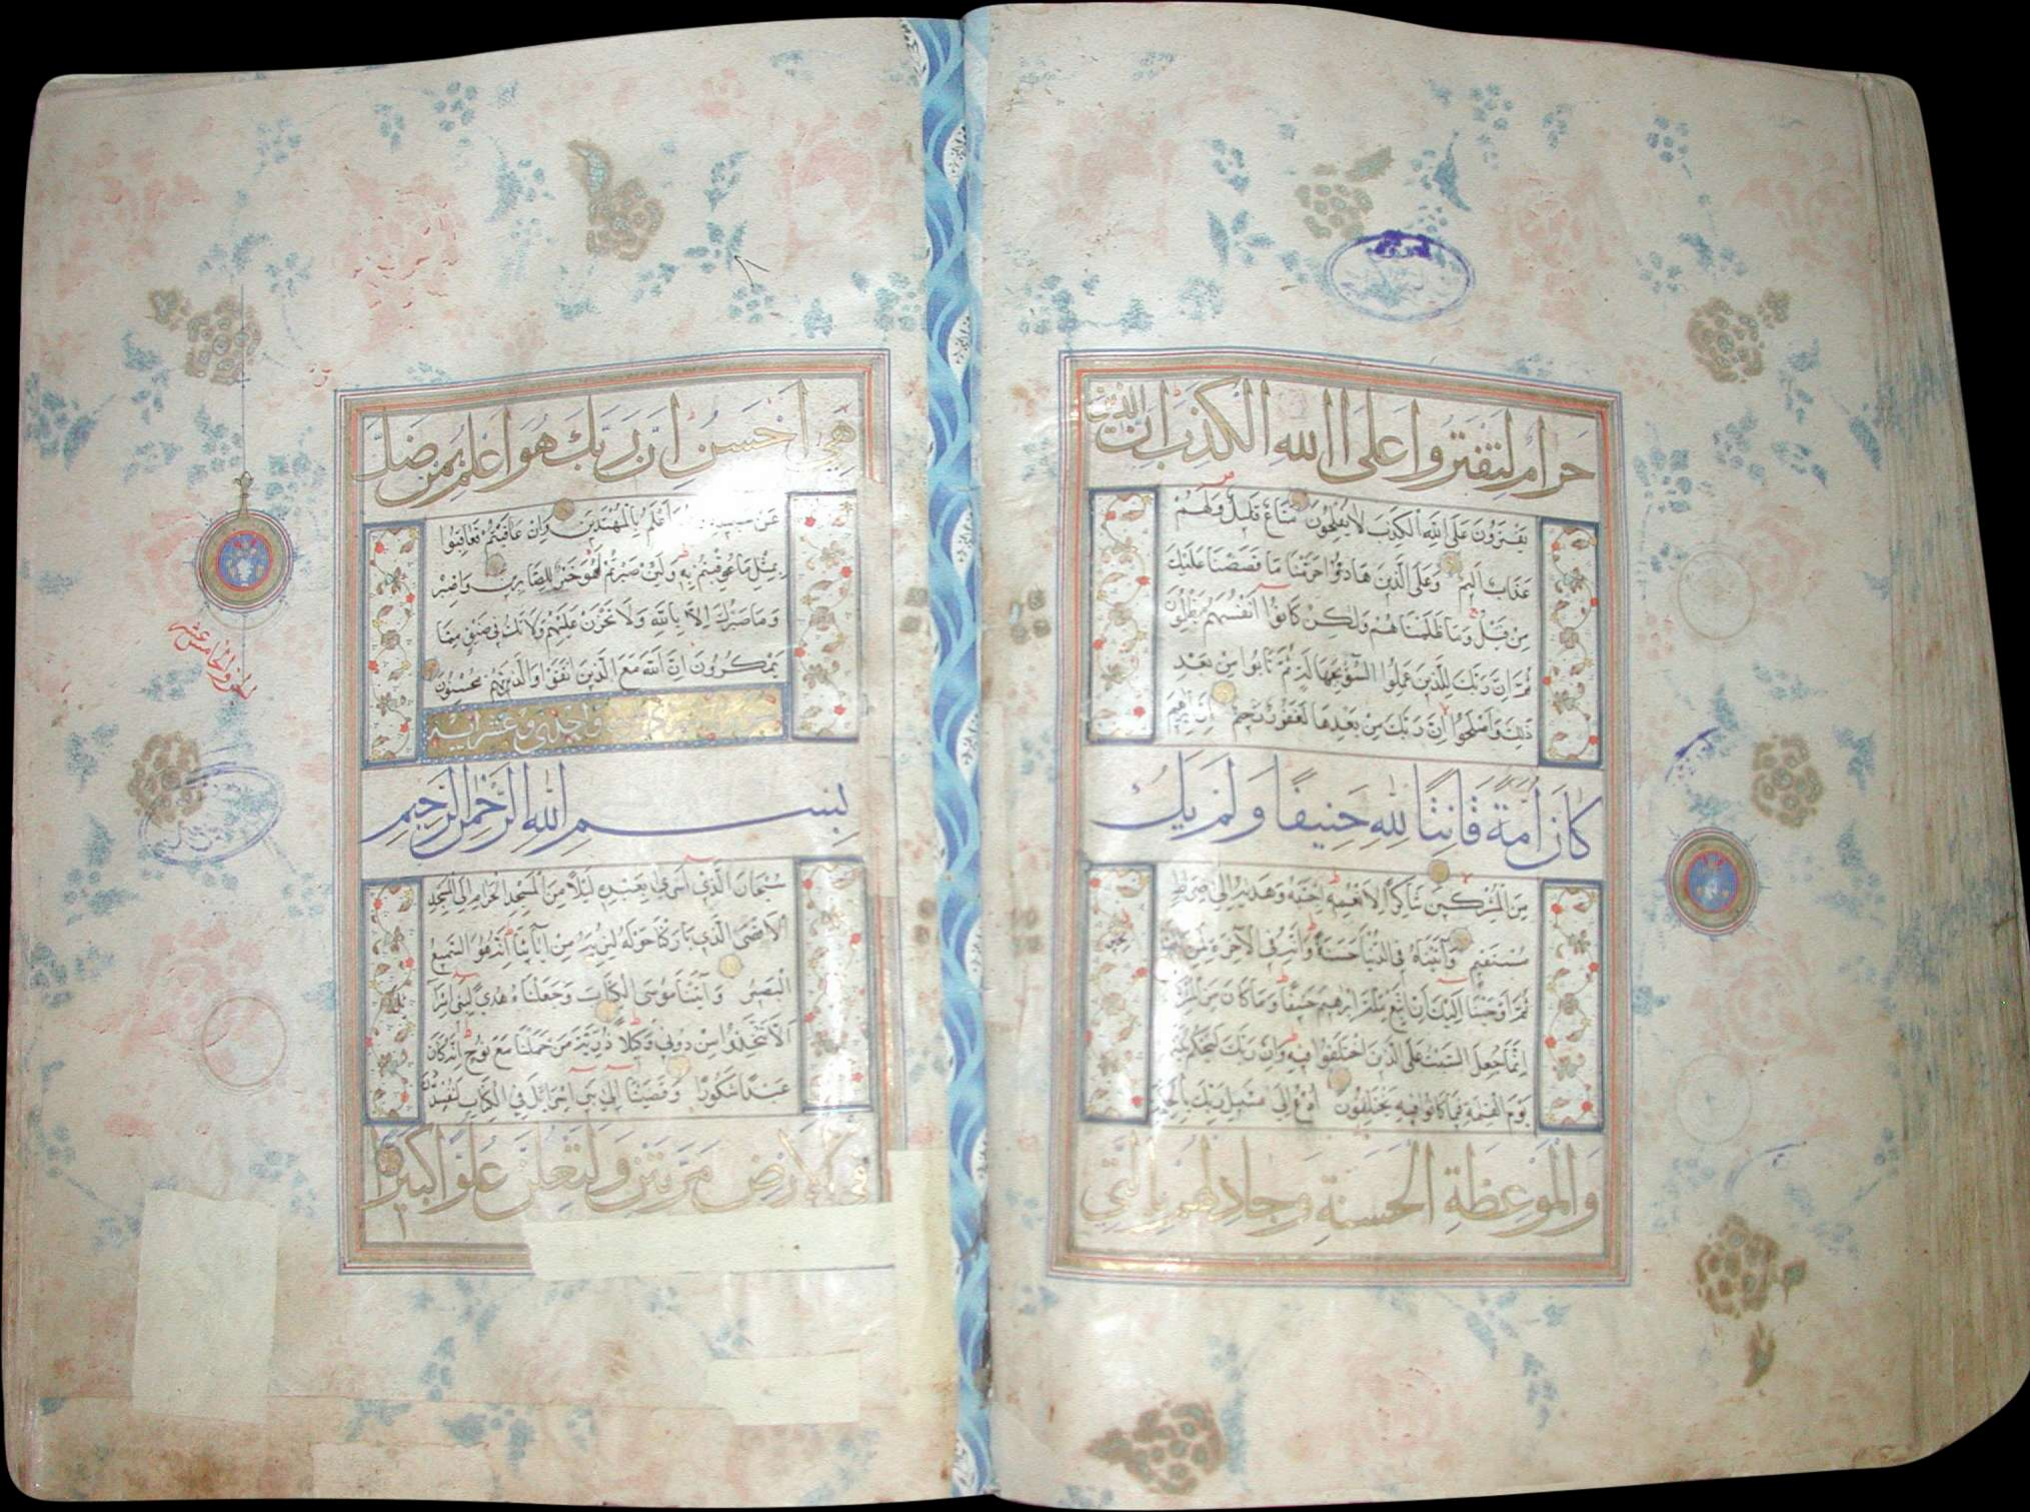 حَرَامٌ لِتَفْتَرُوا عَلَى اللهِ الْكَذِبَ اِنَّ الَّذِينَ
يَفْتَرُونَ عَلَى اللهِ الْكَذِبَ لَا يُفْلِحُونَ مَتَاعٌ قَلِيلٌ وَلَهُمْ
عَذَابٌ اَلِيمٌ وَعَلَى الَّذِينَ هَادُوا حَرَّمْنَا مَا قَصَصْنَا عَلَيْكَ
مِنْ قَبْلُ وَمَا ظَلَمْنَاهُمْ وَلٰكِنْ كَانُوا اَنْفُسَهُمْ يَظْلِمُونَ
ثُمَّ اِنَّ رَبَّكَ لِلَّذِينَ عَمِلُوا السُّوءَ بِجَهَالَةٍ ثُمَّ تَابُوا مِنْ بَعْدِ
ذٰلِكَ وَاَصْلَحُوا اِنَّ رَبَّكَ مِنْ بَعْدِهَا لَغَفُورٌ رَحِيمٌ اِنَّ اِبْرٰهِيمَ
كَانَ اُمَّةً قَانِتًا لِلّٰهِ حَنِيفًا وَلَمْ يَكُ
مِنَ الْمُشْرِكِينَ شَاكِرًا لِاَنْعُمِهِ اجْتَبٰهُ وَهَدٰيهُ اِلٰى صِرَاطٍ
مُسْتَقِيمٍ وَآتَيْنَاهُ فِي الدُّنْيَا حَسَنَةً وَاِنَّهُ فِي الْآخِرَةِ لَمِنَ
ثُمَّ اَوْحَيْنَا اِلَيْكَ اَنِ اتَّبِعْ مِلَّةَ اِبْرٰهِيمَ حَنِيفًا وَمَا كَانَ مِنَ
اِنَّمَا جُعِلَ السَّبْتُ عَلَى الَّذِينَ اخْتَلَفُوا فِيهِ وَاِنَّ رَبَّكَ لَيَحْكُمُ
يَوْمَ الْقِيٰمَةِ فِيمَا كَانُوا فِيهِ يَخْتَلِفُونَ اُدْعُ اِلٰى سَبِيلِ رَبِّكَ بِالْحِكْمَةِ
وَالْمَوْعِظَةِ الْحَسَنَةِ وَجَادِلْهُمْ بِالَّتِي
هِيَ اَحْسَنُ اِنَّ رَبَّكَ هُوَ اَعْلَمُ بِمَنْ ضَلَّ
عَنْ اَعْلَمُ بِالْمُهْتَدِينَ وَاِنْ عَاقَبْتُمْ فَعَاقِبُوا
بِمِثْلِ مَا عُوقِبْتُمْ بِهِ وَلَئِنْ صَبَرْتُمْ لَهُوَ خَيْرٌ لِلصَّابِرِينَ وَاصْبِرْ
وَمَا صَبْرُكَ اِلَّا بِاللهِ وَلَا تَحْزَنْ عَلَيْهِمْ وَلَا تَكُ فِي ضَيْقٍ مِمَّا
يَمْكُرُونَ اِنَّ اللهَ مَعَ الَّذِينَ اتَّقَوْا وَالَّذِينَ هُمْ مُحْسِنُونَ
وعشر آية
بِسْمِ اللهِ الرَّحْمٰنِ الرَّحِيمِ
سُبْحَانَ الَّذِي اَسْرٰى بِعَبْدِهِ لَيْلًا مِنَ الْمَسْجِدِ الْحَرَامِ اِلَى الْمَسْجِدِ
الْاَقْصَى الَّذِي بَارَكْنَا حَوْلَهُ لِنُرِيَهُ مِنْ آيَاتِنَا اِنَّهُ هُوَ السَّمِيعُ
الْبَصِيرُ وَآتَيْنَا مُوسَى الْكِتَابَ وَجَعَلْنَاهُ هُدًى لِبَنِي اِسْرَا
اَلَّا تَتَّخِذُوا مِنْ دُونِي وَكِيلًا ذُرِّيَّةَ مَنْ حَمَلْنَا مَعَ نُوحٍ اِنَّهُ كَانَ
عَبْدًا شَكُورًا وَقَضَيْنَا اِلٰى بَنِي اِسْرَائِيلَ فِي الْكِتَابِ لَتُفْسِدُنَّ
فِي الْاَرْضِ مَرَّتَيْنِ وَلَتَعْلُنَّ عُلُوًّا كَبِيرًا
الجزو الخامس عشر